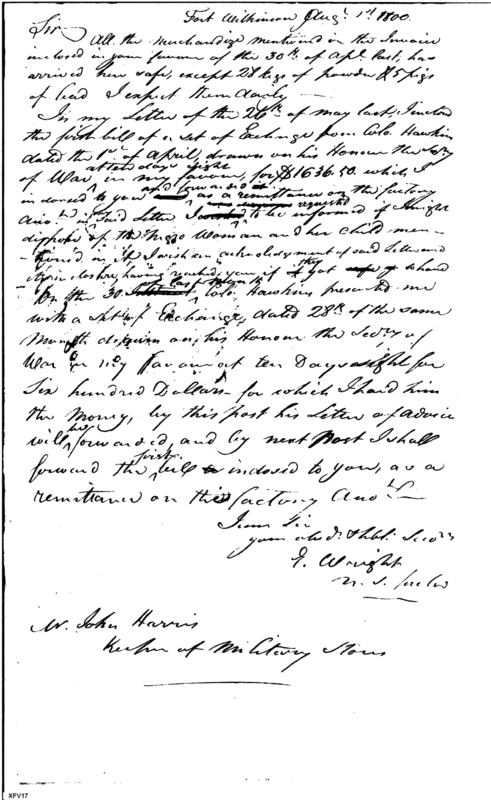 Fort Wilkinson Augt. 1st 1800.
Sir
All the merchandize mentioned in the Invoice
inclosed in your favour of the 30th of Apl. last, has
arrived here safe, except 28 kegs of powder & 5 pigs
of lead I expect them daily
In my Letter of the 26th of may last, I inclosed
the first bill of a set of Exchange from Colo. Hawkins
dated the 1st of April, drawn on his Honour the Secy
of War at ten days sight in my favour, for $1636.50. which I
indorsed to you and forwarded as a remittance on the factory
Anot. in said Letter I requested to be informed if I might
dispose of the Negro Woman and her child men-
tioned in it I wish an acknowledgment of said Letter and
its inclosure, having reached you if they get to hand
On the 30 of last Month Colo. Hawkins presented me
with a Set of Exchange, dated 28th of the same
Month drawn on his Honour the Secry of
War in my favour at ten Days sight for
Six hundred Dollars for which I paid him
the Money, by this post his Letter of advice
will be forwarded, and by next Post I shall
forward the first bill indosed to you, as a
remittance on the factory Anot.
I am Sir
your obdt. & hbl. Servt.
E. Wright
U. S. factor
Mr. John Harris
Keeper of Military Stores
XFV17